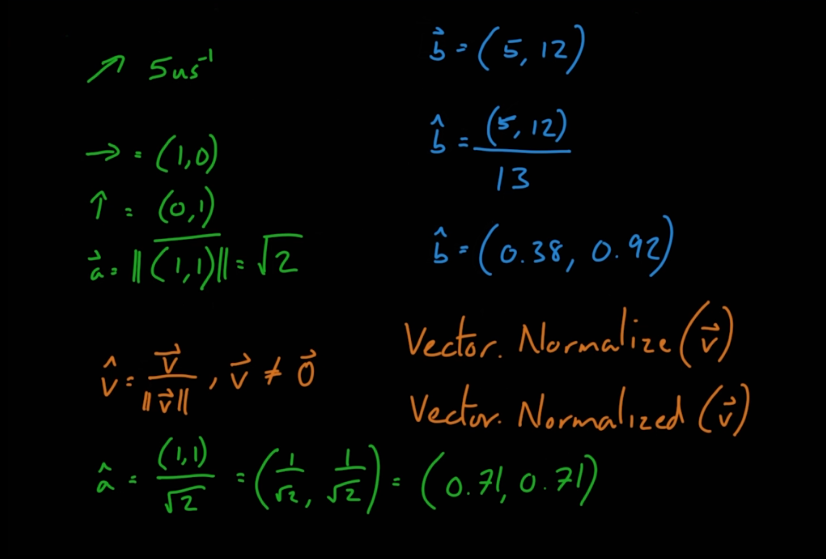 ↗ 5us⁻¹
→ = (1,0)
↑ = (0,1)
a⃗ = ‖(1,1)‖ = √2
v̂ = v⃗ / ‖v⃗‖, v⃗ ≠ 0⃗
â = (1,1) / √2 = (1/√2, 1/√2) = (0.71, 0.71)
b⃗ = (5, 12)
b̂ = (5, 12) / 13
b̂ = (0.38, 0.92)
Vector. Normalize (v⃗)
Vector. Normalized (v⃗)